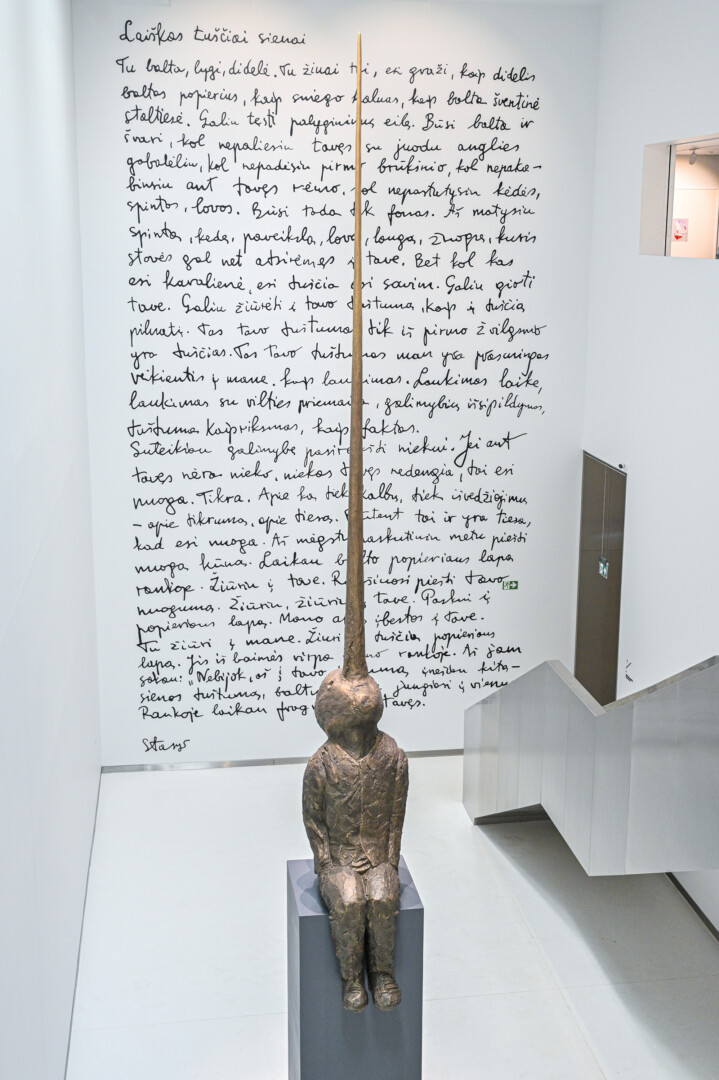 Laiškas tuščiai sienai
Tu balta, lygi, didelė. Tu žinai tai, esi graži, kaip didelis
baltas popierius, kaip sniego kalnas, kaip balta šventinė
staltiesė. Galiu tęsti palyginimų eilę. Būsi balta ir
švari, kol nepaliesiu tavęs su juodu anglies
gabalėliu, kol nepadėsiu pirmo brūkšnio, kol nepaka-
binsiu ant tavęs rėmo, kol nepastatysiu kėdės,
spintos, lovos. Būsi tada tik fonas. Aš matysiu
spintą, kėdę, paveikslą, lovą, langą, žmogų, kuris
stovės gal net atsirėmęs į tave. Bet kol kas
esi karalienė, esi tuščia esi savim. Galiu girti
tave. Galiu žiūrėti į tavo tuštumą, kaip į tuščią
pilnatį. Tas tavo tuštumas tik iš pirmo žvilgsnio
yra tuščias. Tas tavo tuštumas man yra prasmingas
veikiantis į mane, kaip laukimas. Laukimas laike,
laukimas su vilties priemaiša, galimybių išsipildymas,
tuštuma kaip riksmas, kaip faktas.
Suteikiau galimybę pasireikšti niekui. Jei ant
tavęs nėra nieko, niekas tavęs nedengia, tai esi
nuoga. Tikra. Apie ką tiek kalbų, tiek išvedžiojimų
- apie tikrumą, apie tiesą. Būtent tai ir yra tiesa,
kad esi nuoga. Aš mėgstu paskutiniu metu piešti
nuogą kūną. Laikau balto popieriaus lapą
rankoje. Žiūriu į tave. Ruošiuosi piešti tavo
nuogumą. Žiūriu, žiūriu į tave. Paskui į
popieriaus lapą. Mano akys įbestos į tave.
Tu žiūri į mane. Žiūri į tuščią popieriaus
lapą. Jis iš baimės virpa mano rankoje. Aš jam
sakau: "Nebijok, aš į tavo tuštumą įnešiu kitą -
sienos tuštumą, baltumą jungiasi į vieną
Rankoje laikau fragmentą tavęs.
Stasys